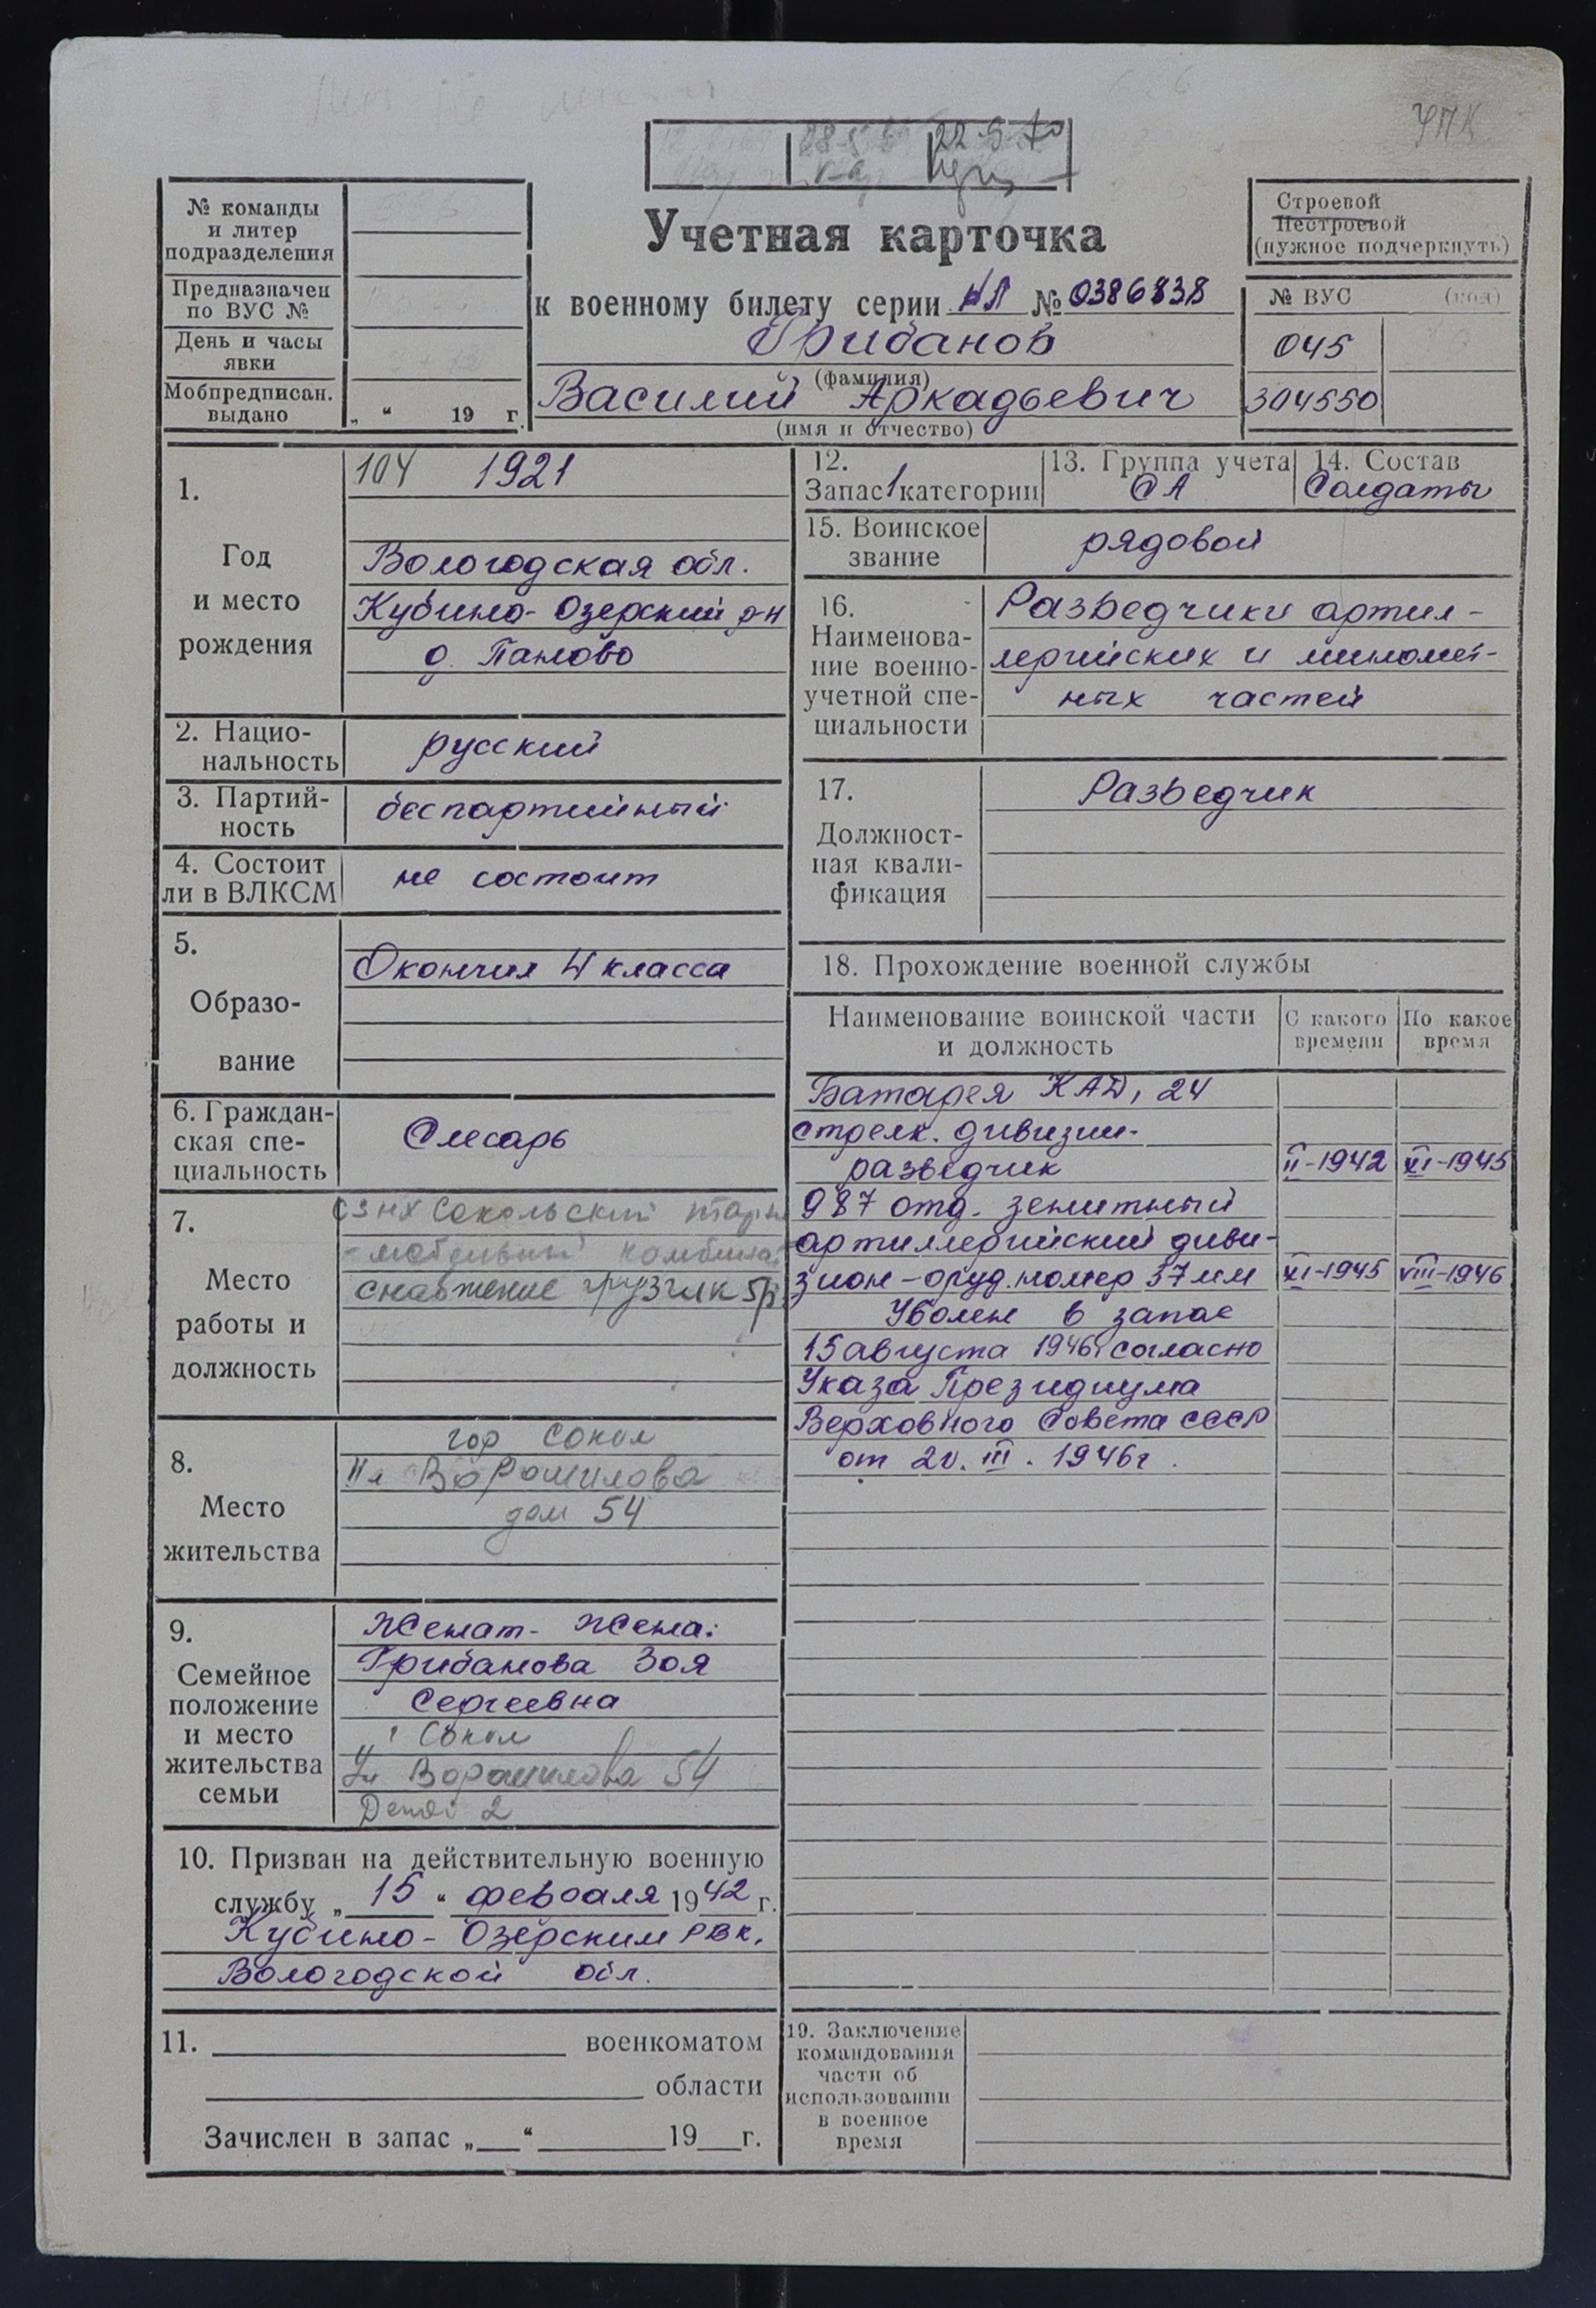 УПК
22 5 70
№ команды
и литер
подразделения
Предназначен
по ВУС №
День и часы
явки
Мобпредписан.
выдано
„ “ 19 г.
Учетная карточка
к военному билету серии НЛ № 0386838
Грибанов
(фамилия)
Василий Аркадьевич
(имя и отчество)
Строевой
Нестроевой
(нужное подчеркнуть)
№ ВУС (код)
045
304550
1.
Год
и место
рождения
104 1921
Вологодская обл.
Кубино-Озерский р-н
д. Паново
2. Нацио-
нальность
русский
3. Партий-
ность
беспартийный
4. Состоит
ли в ВЛКСМ
не состоит
5.
Образо-
вание
Окончил 4 класса
6. Граждан-
ская спе-
циальность
Слесарь
7.
Место
работы и
должность
СЗНХ Сокольский тарн
-мебельный комбинат
снабжение грузчик 5р
8.
Место
жительства
гор Сокол
Ул Ворошилова
дом 54
9.
Семейное
положение
и место
жительства
семьи
Женат- Жена:
Грибанова Зоя
Сергеевна
г Сокол
Ул Ворошилова 54
Детей 2
10. Призван на действительную военную
службу „ 15 “ февраля 1942 г.
Кубино-Озерским РВК,
Вологодской обл.
11. военкоматом
области
Зачислен в запас „ “ 19 г.
12.
Запас 1 категории
13. Группа учета
СА
14. Состав
Солдаты
15. Воинское
звание
рядовой
16.
Наименова-
ние военно-
учетной спе-
циальности
Разведчики артил-
лерийских и миномет-
ных частей
17.
Должност-
ная квали-
фикация
Разведчик
18. Прохождение военной службы
Наименование воинской части
и должность
С какого
времени
По какое
время
Батарея КАД, 24
стрелк. дивизии-
разведчик II-1942 XI-1945
987 отд. зенитный
артиллерийский диви-
зион-оруд. номер 37мм XI-1945 VIII-1946
Уволен в запас
15 августа 1946г согласно
Указа Президиума
Верховного Совета СССР
от 20. III. 1946г.
19. Заключение
командования
части об
использовании
в военное
время